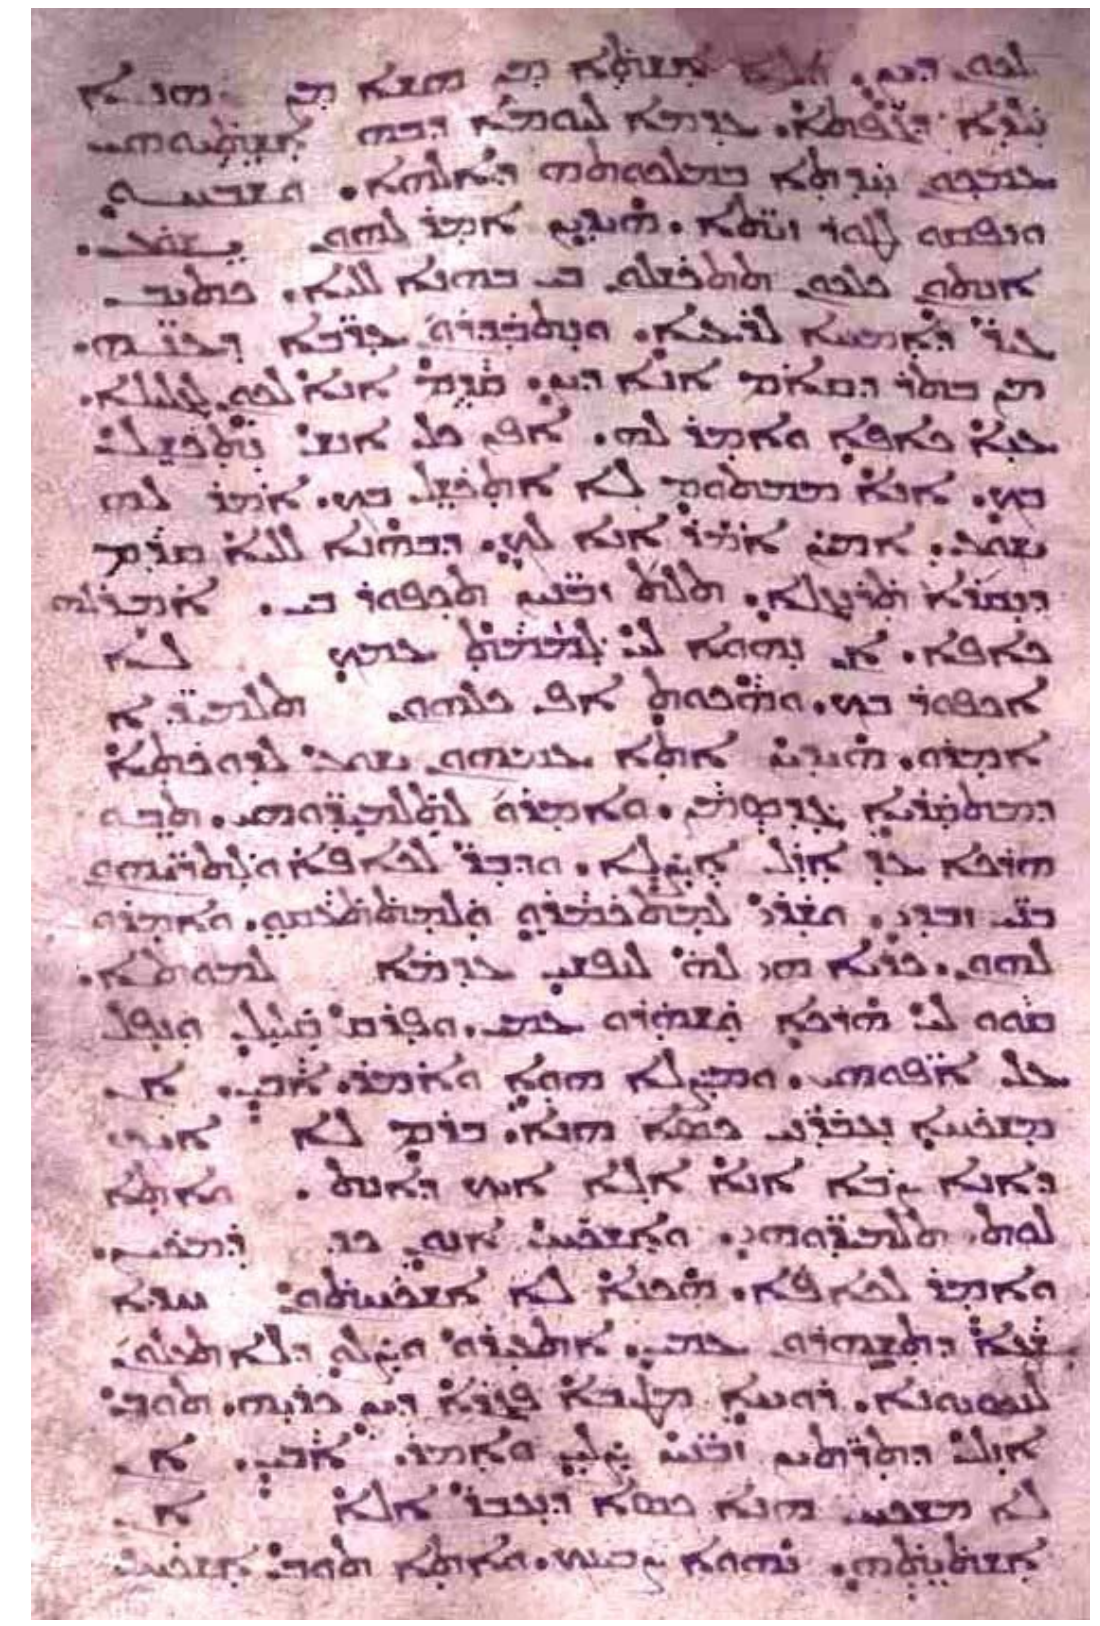 ܠܟܘܢ ܕܝܢ. ܕܠܐ ܐܫܬܐ ܡܢ ܗܫܐ ܡܢ ܗܢܐ
ܝܠܕܐ ܕܓܦܬܐ. ܥܕܡܐ ܠܝܘܡܐ ܕܒܗ ܐܫܬܝܘܗܝ
ܥܡܟܘܢ ܚܕܬܐ ܒܡܠܟܘܬܗ ܕܐܠܗܐ. ܘܫܒܚܘ
ܘܢܦܩܘ ܠܛܘܪ ܙܝ̈ܬܐ. ܗܝܕܝܢ ܐܡܪ ܠܗܘܢ ܝܫܘܥ.
ܐܢܬܘܢ ܟܠܟܘܢ ܬܬܟܫܠܘܢ ܒܝ ܒܗܢܐ ܠܠܝܐ. ܟܬܝܒ
ܓܝܪ ܕܐܡܚܐ ܠܪܥܝܐ. ܘܢܬܒܕܪܘܢ ܥܪ̈ܒܐ ܕܥܢܗ.
ܡܢ ܒܬܪ ܕܩܐܡ ܐܢܐ ܕܝܢ. ܩܕܡ ܐܢܐ ܠܟܘܢ ܠܓܠܝܠܐ.
ܥܢܐ ܟܐܦܐ ܘܐܡܪ ܠܗ. ܐܦܢ ܟܠ ܐܢܫ ܢܬܟܫܠ
ܒܟ. ܐܢܐ ܡܡܬܘܡ ܠܐ ܐܬܟܫܠ ܒܟ. ܐܡܪ ܠܗ
ܝܫܘܥ. ܐܡܝܢ ܐܡܪ ܐܢܐ ܠܟ. ܕܒܗܢܐ ܠܠܝܐ ܩܕܡ
ܕܢܩܪܐ ܬܪܢܓܠܐ. ܬܠܬ ܙܒ̈ܢܝܢ ܬܟܦܘܪ ܒܝ. ܐܡܪ ܠܗ
ܟܐܦܐ. ܐܢ ܢܗܘܐ ܠܝ ܠܡܡܬ ܥܡܟ ܠܐ
ܐܟܦܘܪ ܒܟ. ܘܗܟܘܬ ܐܦ ܟܠܗܘܢ ܬܠܡܝܕ̈ܐ
ܐܡܪܘ. ܗܝܕܝܢ ܐܬܐ ܥܡܗܘܢ ܝܫܘܥ ܠܕܘܟܬܐ
ܕܡܬܩܪܝܐ ܓܕܣܝܡܢ. ܘܐܡܪ ܠܬܠܡܝܕ̈ܘܗܝ. ܬܒܘ
ܗܪܟܐ ܥܕ ܐܙܠ ܐܨܠܐ. ܘܕܒܪ ܠܟܐܦܐ ܘܠܬܪ̈ܝܗܘܢ
ܒܢ̈ܝ ܙܒܕܝ. ܘܫܪܝ ܠܡܬܟܡܪܘ ܘܠܡܬܬܥܩܘ. ܘܐܡܪ
ܠܗܘܢ. ܟܪܝܐ ܗܝ ܠܗ ܠܢܦܫܝ ܥܕܡܐ ܠܡܘܬܐ.
ܩܘܘ ܠܝ ܗܪܟܐ ܘܫܗܪܘ ܥܡܝ. ܘܦܪܩ ܩܠܝܠ ܘܢܦܠ
ܥܠ ܐܦ̈ܘܗܝ. ܘܡܨܠܐ ܗܘܐ ܘܐܡܪ. ܐܒܝ. ܐܢ
ܡܫܟܚܐ ܢܥܒܪܢܝ ܟܣܐ ܗܢܐ. ܒܪܡ ܠܐ ܐܝܟ
ܕܐܢܐ ܨܒܐ ܐܢܐ ܐܠܐ ܐܝܟ ܕܐܢܬ. ܘܐܬܐ
ܠܘܬ ܬܠܡܝܕ̈ܘܗܝ. ܘܐܫܟܚ ܐܢܘܢ ܟܕ ܕܡܟܝܢ.
ܘܐܡܪ ܠܟܐܦܐ. ܗܟܢܐ ܠܐ ܐܫܟܚܬܘܢ ܚܕܐ
ܫܥܐ ܕܬܫܗܪܘܢ ܥܡܝ. ܐܬܬܥܝܪܘ ܘܨܠܘ ܕܠܐ ܬܥܠܘܢ
ܠܢܣܝܘܢܐ. ܪܘܚܐ ܡܛܝܒܐ ܦܓܪܐ ܕܝܢ ܟܪܝܗ. ܬܘܒ
ܐܙܠ ܕܬܪ̈ܬܝܢ ܙܒ̈ܢܝܢ ܨܠܝ ܘܐܡܪ. ܐܒܝ. ܐܢ
ܠܐ ܡܫܟܚ ܗܢܐ ܟܣܐ ܕܢܥܒܪ ܐܠܐ ܐܢ
ܐܫܬܝܬܗ. ܢܗܘܐ ܨܒܝܢܟ. ܘܐܬܐ ܬܘܒ ܐܫܟܚ